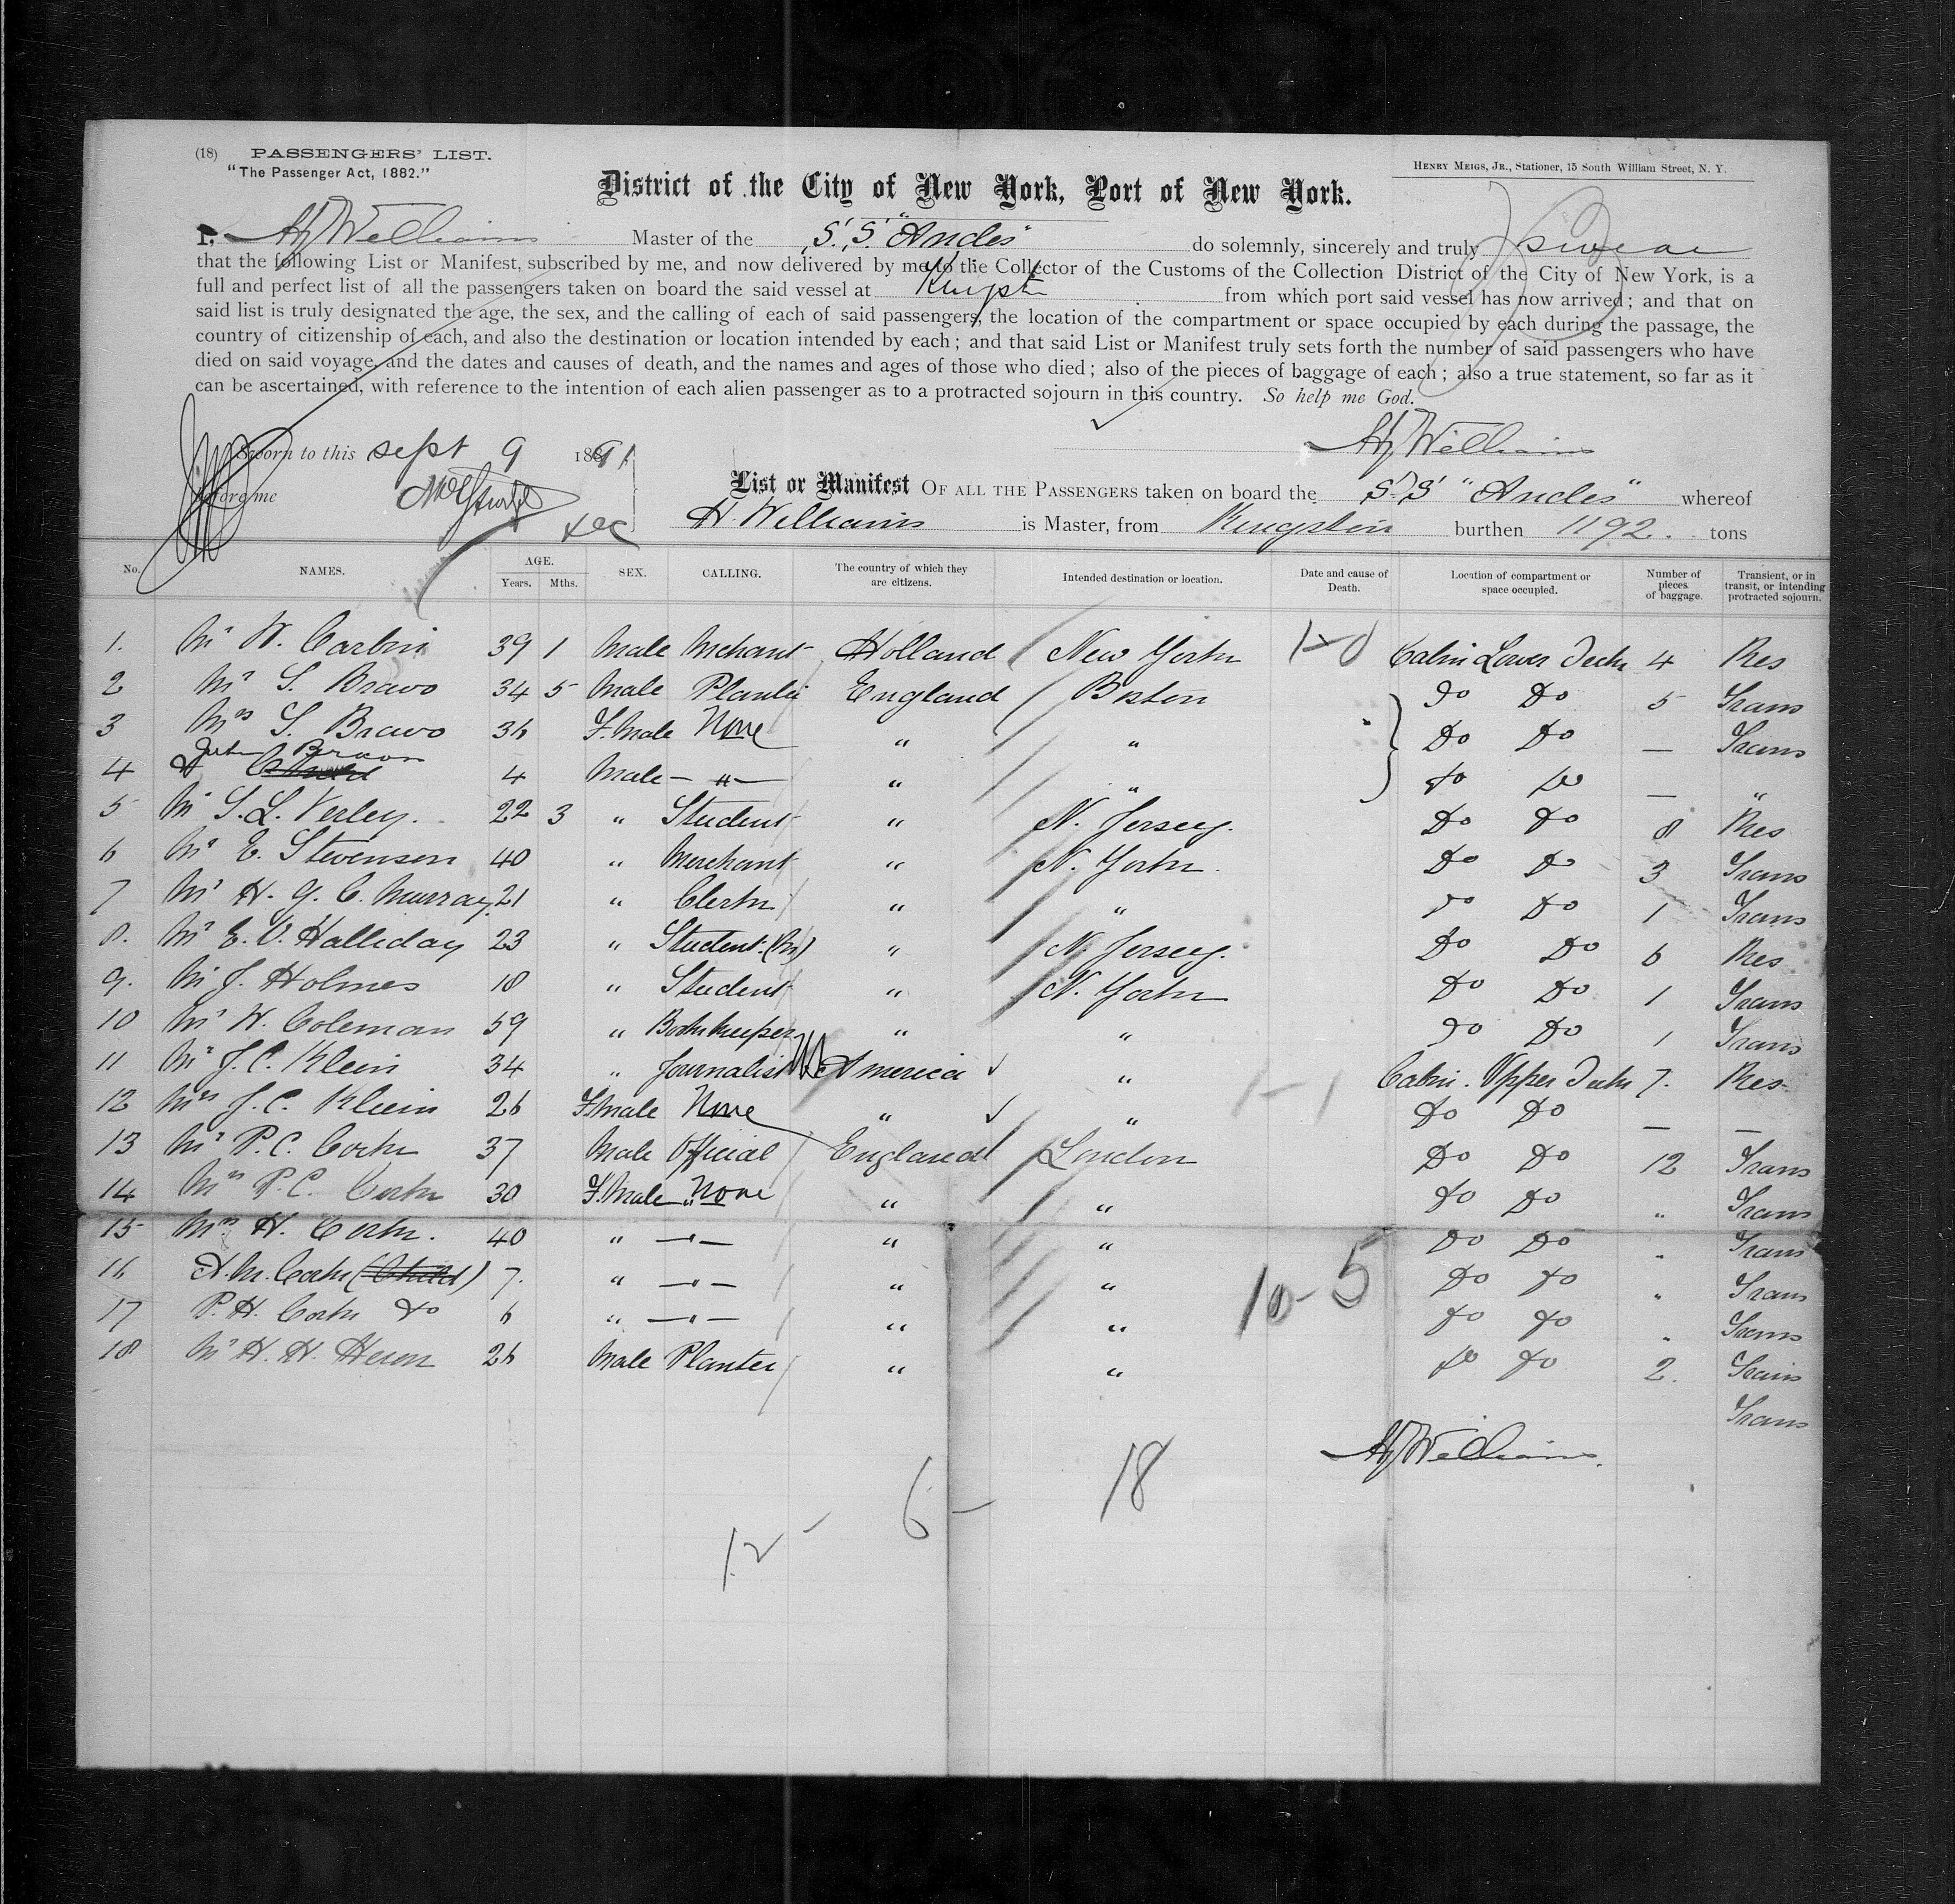 (18) PASSENGERS' LIST.
"The Passenger Act, 1882."
HENRY MEIGS, JR., Stationer, 15 South William Street, N. Y.
District of the City of New York, Port of New York.
I, H Williams Master of the S.S. "Andes" do solemnly, sincerely and truly swear
that the following List or Manifest, subscribed by me, and now delivered by me to the Collector of the Customs of the Collection District of the City of New York, is a
full and perfect list of all the passengers taken on board the said vessel at Kingston from which port said vessel has now arrived; and that on
said list is truly designated the age, the sex, and the calling of each of said passengers, the location of the compartment or space occupied by each during the passage, the
country of citizenship of each, and also the destination or location intended by each; and that said List or Manifest truly sets forth the number of said passengers who have
died on said voyage, and the dates and causes of death, and the names and ages of those who died; also of the pieces of baggage of each; also a true statement, so far as it
can be ascertained, with reference to the intention of each alien passenger as to a protracted sojourn in this country. So help me God.
H Williams
Sworn to this Sept 9 1891
before me
List or Manifest OF ALL THE PASSENGERS taken on board the S.S "Andes" whereof
H. Williams is Master, from Kingston burthen 1192. tons
No. NAMES. AGE. Years. Mths. SEX. CALLING. The country of which they are citizens. Intended destination or location. Date and cause of Death. Location of compartment or space occupied. Number of pieces of baggage. Transient, or in transit, or intending protracted sojourn.
1. Mr W. Carbin 39 1 Male Mchant Holland New York 1-0 Cabin Lower Deck 4 Res
2 Mr S. Bravo 34 5 Male Planter England Boston Do Do 5 Trans
3 Mrs S. Bravo 36 F.Male None " " Do Do — Trans
4 Bravo 4 Male — " — " " Do Do — "
5 Mr S. L. Verley. 22 3 " Student " N. Jersey. Do Do 8 Res
6 Mr E. Stevenson 40 " Merchant " N. York. Do Do 3 Trans
7 Mr H. G. C. Murray. 21 " Clerk " " Do Do 1 Trans
8. Mr E. V. Halliday 23 " Student " N. Jersey. Do Do 6 Res
9. Mr J. Holmes 18 " Student " N. York Do Do 1 Trans
10 Mr W. Coleman 59 " Bookkeeper " " Do Do 1 Trans
11 Mr J. C. Klein 34 " Journalist America " Cabin. Upper Deck 7. Res
12 Mrs J. C. Klein 26 F.Male None " " 1-1 Do Do — —
13 Mr P. C. Cork 37 Male Official England London Do Do 12 Trans
14 Mrs P. C. Cork 30 F.Male None " " Do Do " Trans
15 Mrs H. Cork. 40 " — " — " " Do Do " Trans
16 A. M. Cork (Child) 7. " — " — " " 10-5 Do Do " Trans
17 P. H. Cork Do 6 " — " — " " Do Do " Trans
18 Mr H. H. Heron 26 Male Planter " " Do Do 2. Trans
Trans
H Williams.
12 - 6 - 18